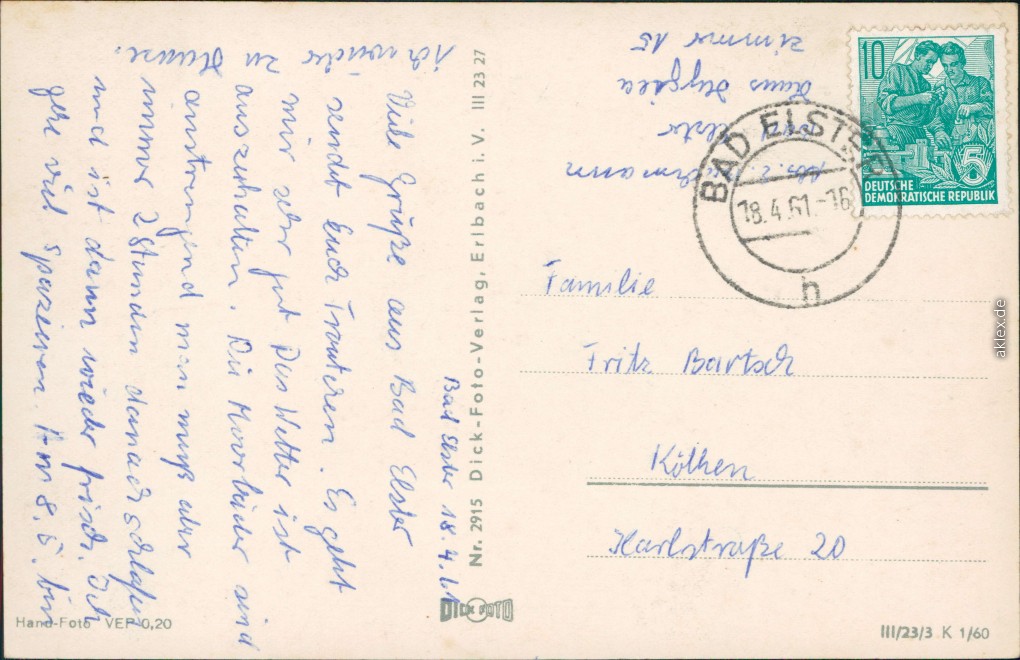 Bad Elster 18.4.61
Viele Grüße aus Bad Elster
sendet Euch Trautchen. Es geht
mir sehr gut Das Wetter ist
auszuhalten. Die Moorbäder sind
anstrengend man muß aber
immer 2 Stunden danach schlafen
und ist dann wieder frisch. Ich
gehe viel spazieren. Am 8.5. bin
ich wieder
zu Hause.
Nr. 2915 Dick-Foto-Verlag, Erlbach i. V. III 23 27
DICK FOTO
Hand-Foto VEP 0,20
Abs.
Elster
Haus Hygiea
Zimmer 15
10
5
DEUTSCHE
DEMOKRATISCHE REPUBLIK
BAD ELSTER
18.4.61.-16
h
Familie
Fritz Bartsch
Köthen
Karlstraße 20
III/23/3 K 1/60
aklex.de